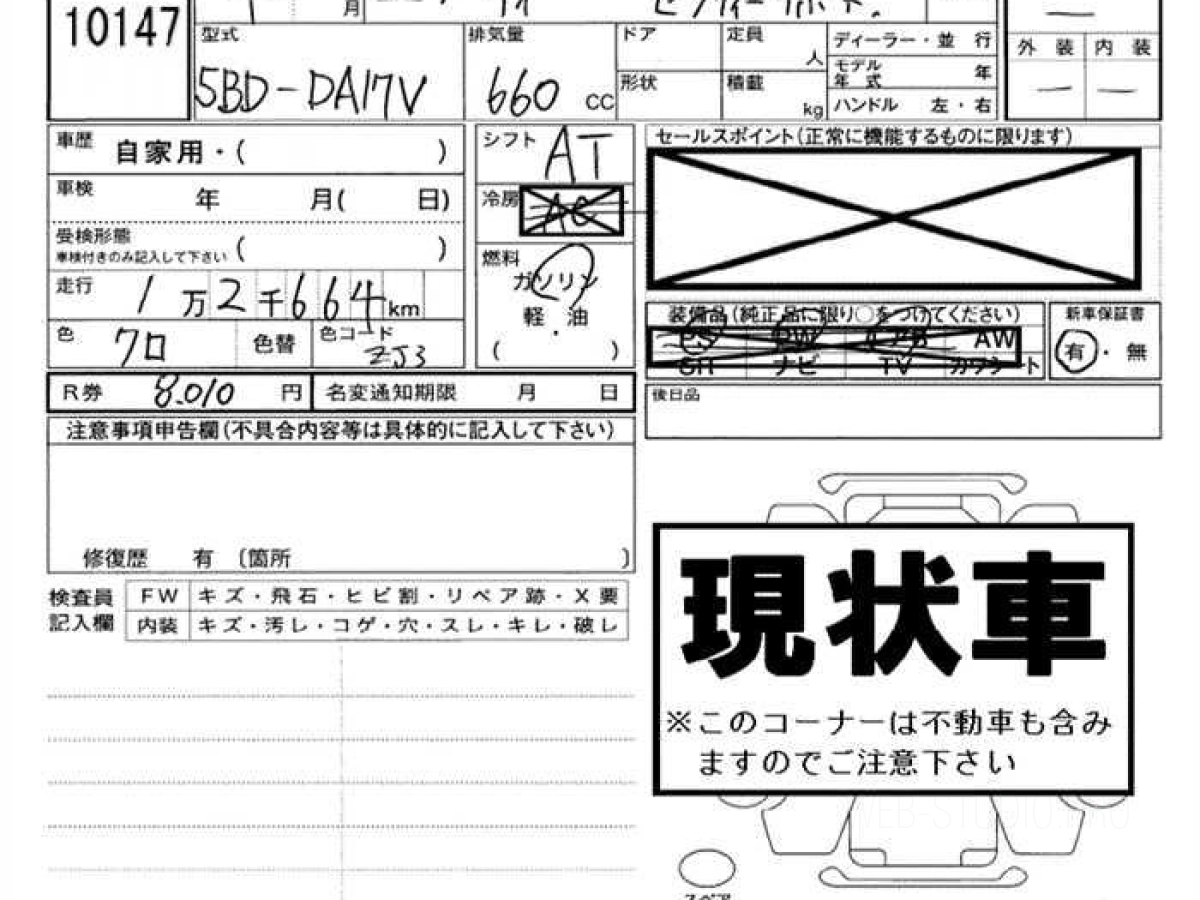 10147
月
型式
5BD-DA17V
排気量
660 CC
ドア
形状
定員
人
積載
kg
ディーラー・並 行
モデル
年 式 年
ハンドル 左・右
外 装 内 装
車歴 自家用・( )
車検 年 月( 日)
受検形態
車検付きのみ記入して下さい ( )
走行 1万2千664km
色 クロ 色替 色コード ZJ3
シフト AT
冷房 AC
燃料
ガソリン
軽・油
( )
セールスポイント(正常に機能するものに限ります)
装備品(純正品に限り○をつけてください)
PS PW エアB AW
SR ナビ TV カワシート
新車保証書
有・無
R券 8,010 円 名変通知期限 月 日
後日品
注意事項申告欄(不具合内容等は具体的に記入して下さい)
修復歴 有 〔箇所 〕
検査員
記入欄
FW キズ・飛石・ヒビ割・リペア跡・X要
内装 キズ・汚レ・コゲ・穴・スレ・キレ・破レ
現状車
※このコーナーは不動車も含み
ますのでご注意下さい
スペア